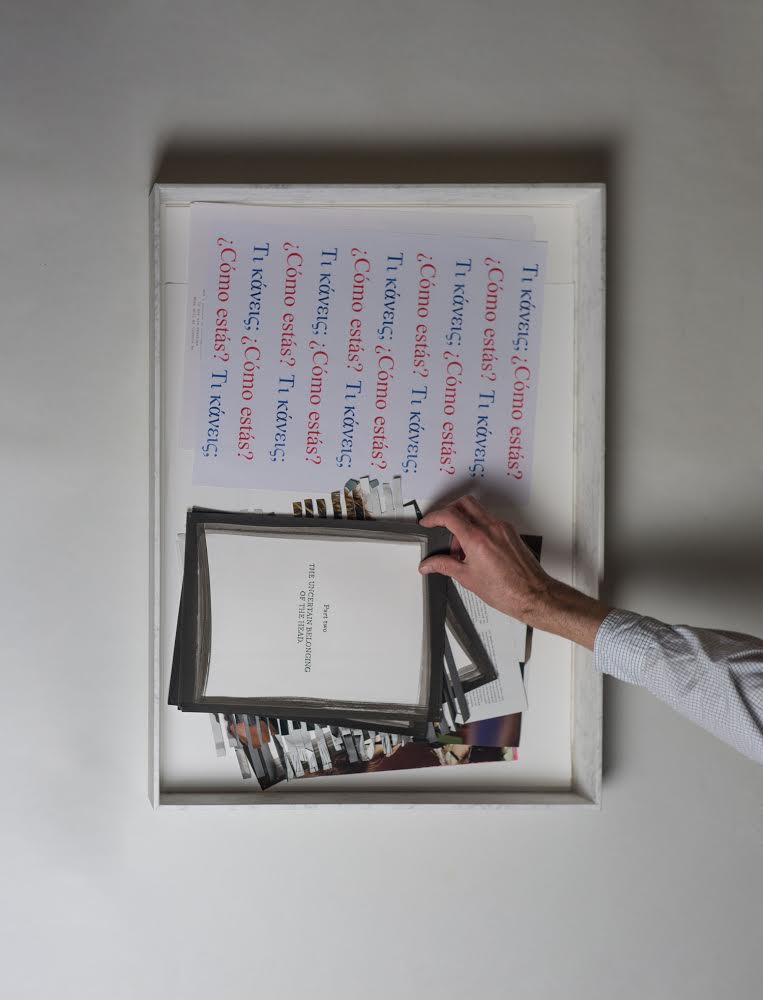 Τι κάνεις; ¿Cómo estás?
¿Cómo estás? Τι κάνεις;
Τι κάνεις; ¿Cómo estás?
¿Cómo estás? Τι κάνεις;
Τι κάνεις; ¿Cómo estás?
¿Cómo estás? Τι κάνεις;
Τι κάνεις; ¿Cómo estás?
¿Cómo estás? Τι κάνεις;
Τι κάνεις; ¿Cómo estás?
¿Cómo estás? Τι κάνεις;
Part two
THE UNCERTAIN BELONGING
OF THE HEAD.